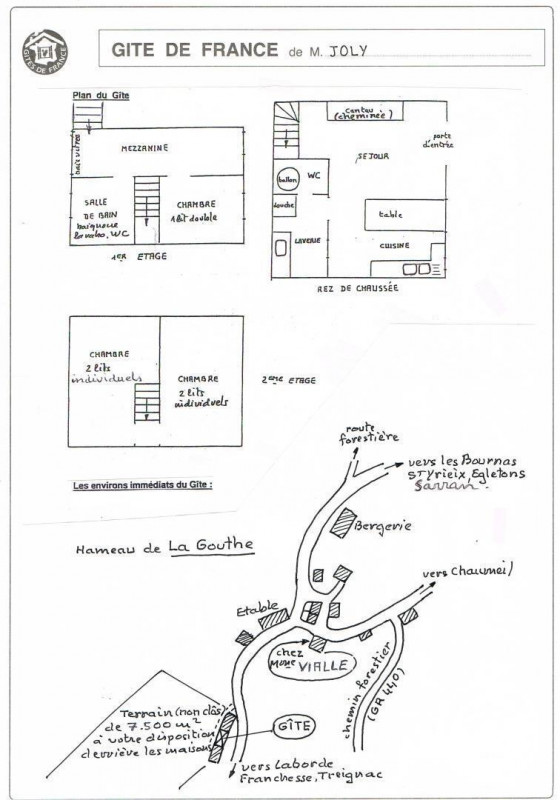 GITES DE FRANCE
GITE DE FRANCE de M. JOLY
Plan du Gîte
BAIE VITRÉE
MEZZANINE
SALLE
DE BAIN
baignoire
lavabo, WC
CHAMBRE
1 lit double
1ER ETAGE
Cantou
(cheminée)
porte
d'entrée
SEJOUR
ballon
WC
douche
table
LAVERIE
CUISINE
REZ DE CHAUSSÉE
CHAMBRE
2 lits
individuels
CHAMBRE
2 lits
individuels
2eme ETAGE
Les environs immédiats du Gîte :
route
forestière
vers les Bournas
ST Yrieix, Egletons
Sarran.
Bergerie
Hameau de La Gouthe
vers Chaumeil
Etable
chez
Mme VIALLE
chemin forestier
(GR 440)
Terrain (non clôs)
de 7.500 m²
à votre disposition
derrière les maisons
GÎTE
vers Laborde
Franchesse, Treignac